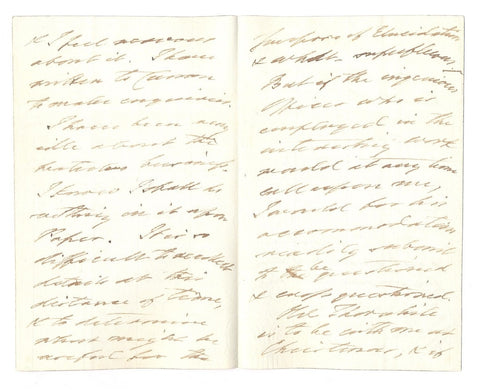 & I feel nervous
about it. I have
written to Curran
to make enquiries.
I have been very
idle about the
business.
I know I shall do
nothing in it upon
Paper. It is so
difficult to recollect
details at this
distance of time,
& to determine
what might be
useful for the
purpose of Elucidation
& what superfluous.
But if the ingenious
who is
employed in the
interesting work
would at any time
call upon me,
I would for his
accommodation
readily submit
to be questioned
& cross questioned.
is to be with me at
Christmas, & if